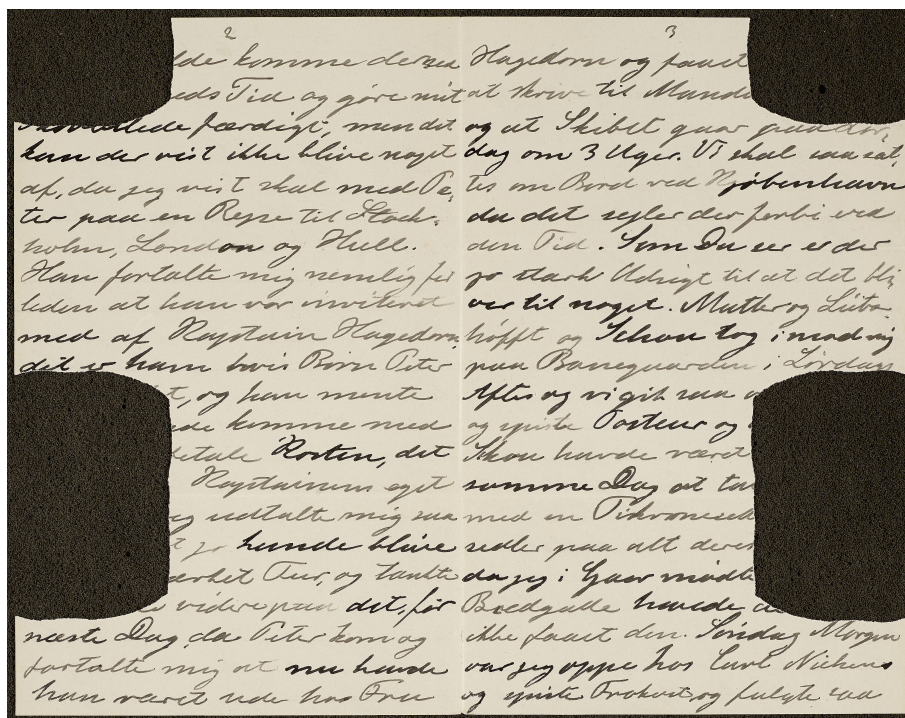 2
lde komme derned
eds Tid og gøre mit
færdigt, men det
kan der vist ikke blive noget
af, da jeg vist skal med Pe,
ter paa en Rejse til Stock,
holm, London og Hull.
Han fortalte mig nemlig for
leden at han var inviteret
med af Kaptain Hagedorn,
det er ham hvis Børn Peter
t, og han mente
de komme med
betale Kosten, det
Kaptainens eget
eg udtalte mig saa
t jo kunde blive
Tur, og tænkte
videre paa det, før
næste Dag da Peter kom og
fortalte mig at nu havde
han været ude hos Fru
3
Hagedorn og faaet
at skrive til Mand
og at Skibet gaar paa
dag om 3 Uger. Vi skal saa sæt,
tes om Bord ved Kjøbenhavn
da det sejler der forbi ved
den Tid. Som Du ser er der
jo stærk Udsigt til at det bli,
ver til noget. Mutter og
og Schou tog imod mig
paa Banegaarden i Lørdags
Aftes og vi gik saa
og spiste og
Skou havde været
samme Dag at
med en Tikroneseddel
sedler paa alt deres
da jeg i Gaar mødte
Bredgade havde
ikke faaet den. Søndag Morgen
var jeg oppe hos Carl
og spiste Frokost og fulgte saa